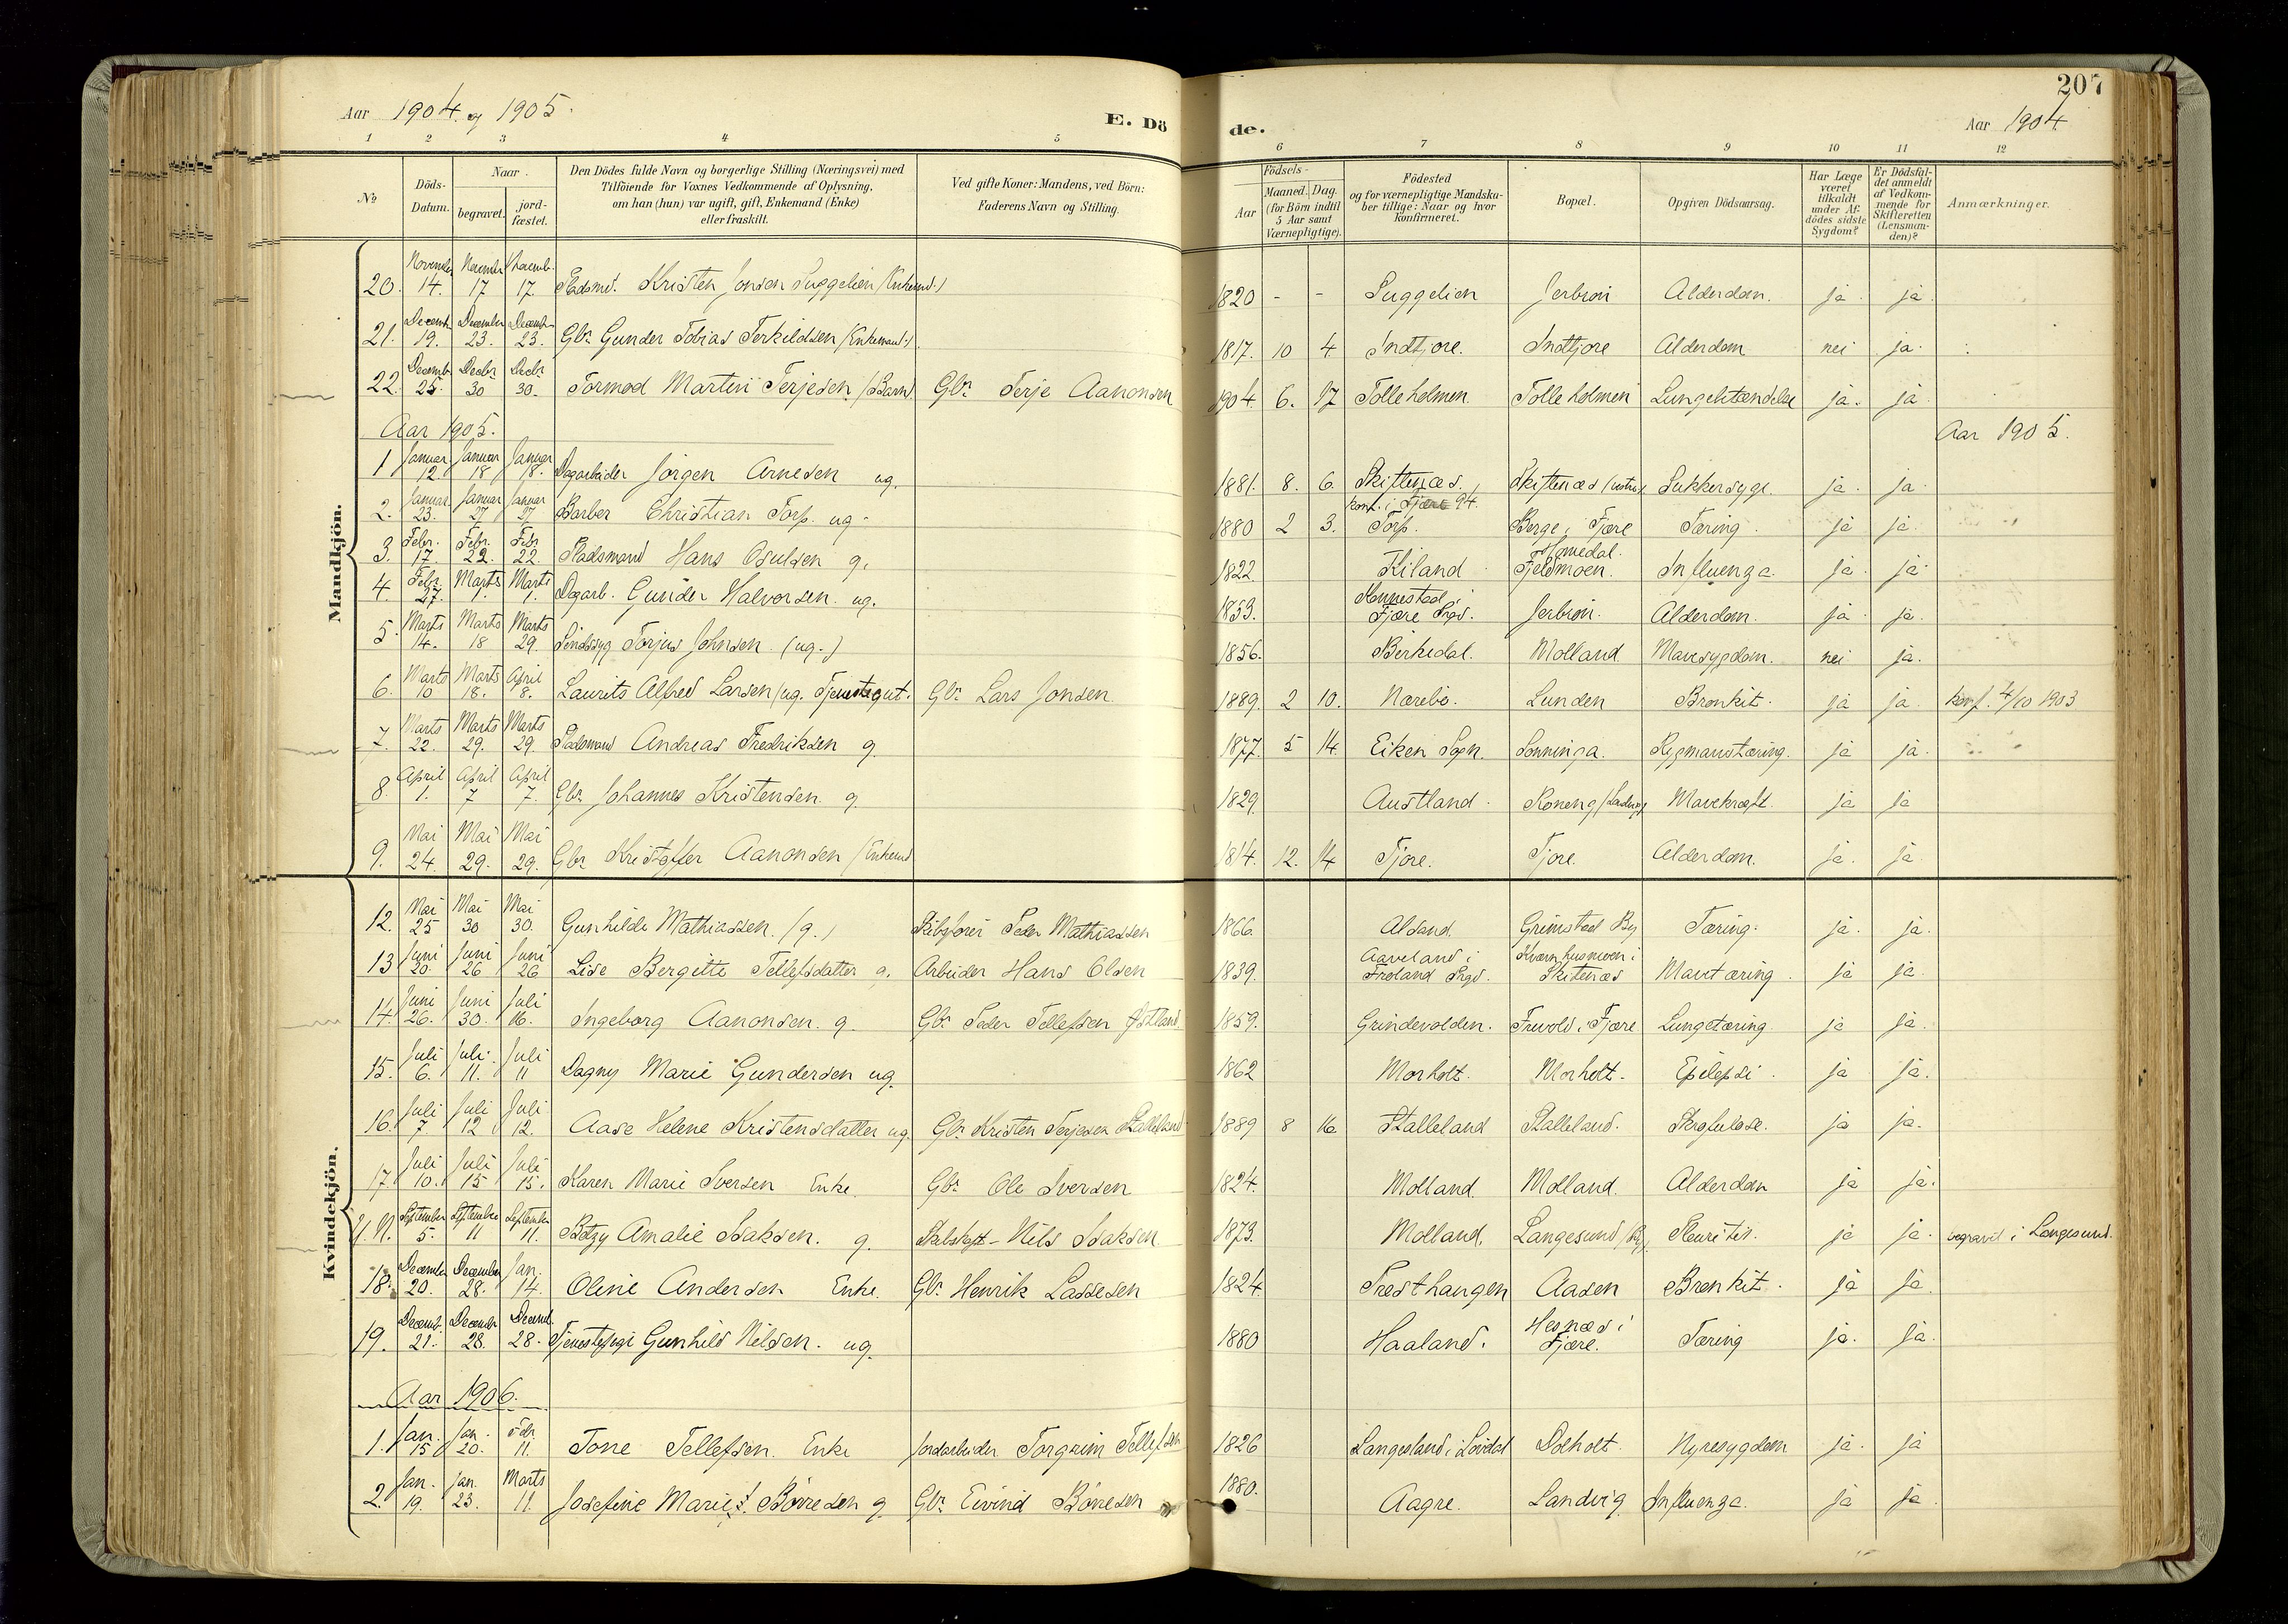 207
Aar 1904. og 1905.
E. Dö de.
Aar 1904
1 2 3 4 5 6 7 8 9 10 11 12
No
Döds-Datum.
Naar
begravet.
jord-fæstet.
Den Dödes fulde Navn og borgerlige Stilling (Næringsvei) med
Tilföiende for Voxnes Vedkommende af Oplysning,
om han (hun) var ugift, gift, Enkemand (Enke)
eller fraskilt.
Ved gifte Koner: Mandens, ved Börn:
Faderens Navn og Stilling.
Födsels-
Aar
Maaned. Dag.
(for Börn indtil
5 Aar samt
Værnepligtige).
Födested
og for værnepligtige Mandska-
ber tillige: Naar og hvor
konfirmeret.
Bopæl.
Opgiven Dödsaarsag.
Har Læge
været
tilkaldt
under Af-
dödes sidste
Sygdom?
Er Dödsfal-
det anmeldt
af Vedkom-
mende for
Skifteretten
(Lensman-
den)?
Anmærkninger.
Mandkjön.
20. November 14. November 17 Novemb. 17. Pladsmd. Kristen Jonsen Suggelien (Enkemd.) 1820 - - Suggelien Jerbron Alderdom. ja ja
21. Decemb. 19. December 23. Decemb. 23. Gbr. Gunder Tobias Terkildsen (Enkemand.) 1817. 10 4 Indtjore. Indtjore Alderdom nei ja.
22. Decemb. 25. Decbr 30 Decbr 30. Tormod Martin Terjesen (Barn) Gbr. Terje Aanonsen 1904. 6. 17 Tolleholmen. Tolleholmen Lungebetændelse ja. ja
Aar 1905.
Aar 1905.
1 Januar 12. Januar 18 Januar 18. Dagarbeider Jörgen Arnesen ug. 1881. 8. 6. Skiftenæs. konf. i Fjære 94. Skiftenæs Sukkersyge. ja. ja.
2. Januar 23. Januar 27 Januar 27 Barber Christian Torp. ug. 1880 2 3. Torp. Berge i Fjære Tæring. ja ja
3. Febr. 17. Febr. 22. Febr 22. Pladsmand Hans Osulsen g. 1822. Kiland Homedal. Fjeldmoen. Influenza. ja ja
4. Febr. 27 Marts 1. Marts 1. Dagarb. Gunder Halvorsen. ug. 1833. i Fjære Prgd. Jerbron. Alderdom. ja ja.
5. Marts 14. Marts 18 Marts 29. Sindssyg Torjus Johnsen. (ug.) 1856. Birkedal. Molland Mavesygdom. nei ja.
6. Marts 10 Marts 18. April 8. Laurits Alfred Larsen (ug. Tjenstegut. Gbr. Lars Jonsen 1889. 2 10. Nærebö. Lunden Bronkit. ja ja konf. 4/10 1903
7. Marts 22. Marts 29. Marts 29. Pladsmand Andreas Fredriksen g. 1877. 5 14. Eiken Sogn. Sonninga. Rygmarvstæring. ja ja
8. April 1. April 7 April 7. Gbr. Johannes Kristensen. g. 1829. Austland. Mavekræft. ja ja
9. Mai 24. Mai 29. Mai 29. Gbr. Kristoffer Aanonsen (Enkemd 1814. 12. 14 Tjore. Tjore. Alderdom. ja. ja.
Kvindekjön.
12. Mai 25 Mai 30 Mai 30. Gunhilde Mathiassen. (g.) Skibsförer Peder Mathiassen 1866. Alsand. Grimstad By Tæring. ja. ja.
13 Juni 20. Juni 26 Juni 26 Lise Bergitte Tellefsdatter g. Arbeider Hans Olsen 1839. Aaveland i Froland Prgd. Kvernhusmoen i Skiftenæs Mavetæring. ja ja.
14. Juni 26. Juni 30. Juli 16. Ingeborg Aanonsen. g. Gbr. Peder Tellefsen Östland. 1859. Grindevolden. Frivold i Fjære Lungetæring. ja ja.
15. Juli 6. Juli 11. Juli 11 Dagny Marie Gundersen ug. 1862 Morholt. Morholt. Epilepsi. ja ja.
16. Juli 7 Juli 12 Juli 12. Aase Helene Kristensdatter ug. Gbr. Kristen Terjesen Stalleland 1889 8 16. Stalleland Stalleland. Skrofulose. ja ja.
17. Juli 10. Juli 15 Juli 15. Karen Marie Iversen Enke. Gbr. Ole Iversen 1824. Molland. Molland. Alderdom ja ja.
U.N. September 5. September 11 September 11. Betzy Amalie Isaksen. g. Nils Isaksen 1873. Molland. Langesund (By). Pleuritis. ja ja. begravet i Langesund.
18. December 20. December 28. Jan. 14. Oline Andersen Enke. Gbr. Henrik Lassesen 1824 Presthangen Aasen Bronkit. ja ja.
19. Decemb. 21. December 28. Decemb. 28. Tjenestepige Gunhild Nilsen. ug. 1880 Haaland. Hesnæs i Fjære. Tæring ja. ja.
Aar 1906.
1. Jan. 15 Jan. 20. Febr. 11. Tone Tellefsen. Enke Jordarbeider Torgrim Tellefsen 1826 Langesland i Dolholt. Nyresygdom ja. ja
2. Jan. 19. Jan. 23. Marts 11. Josefine Marie Börresen g. Gbr. Eivind Börresen 1880. Aagre. Landvig Influenza. ja ja.